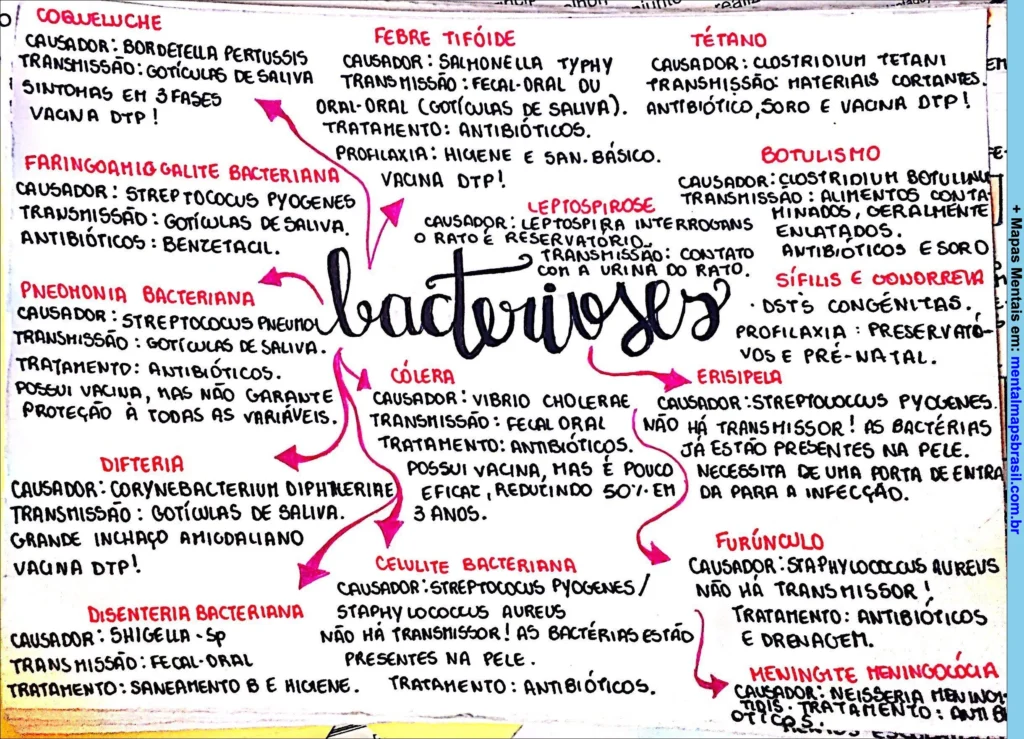 COQUELUCHE
CAUSADOR: BORDETELLA PERTUSSIS
TRANSMISSÃO: GOTÍCULAS DE SALIVA
SINTOMAS EM 3 FASES
VACINA DTP!
FEBRE TIFÓIDE
CAUSADOR: SALMONELLA TYPHY
TRANSMISSÃO: FECAL-ORAL OU
ORAL-ORAL (GOTÍCULAS DE SALIVA).
TRATAMENTO: ANTIBIÓTICOS.
PROFILAXIA: HIGIENE E SAN. BÁSICO.
VACINA DTP!
TÉTANO
CAUSADOR: CLOSTRIDIUM TETANI
TRANSMISSÃO: MATERIAIS CORTANTES.
ANTIBIÓTICO, SORO E VACINA DTP!
FARINGOAMIGGALITE BACTERIANA
CAUSADOR: STREPTOCOCUS PYOGENES
TRANSMISSÃO: GOTÍCULAS DE SALIVA.
ANTIBIÓTICOS: BENZETACIL.
LEPTOSPIROSE
CAUSADOR: LEPTOSPIRA INTERROGANS
O RATO É RESERVATÓRIO.
TRANSMISSÃO: CONTATO
COM A URINA DO RATO.
BOTULISMO
CAUSADOR: CLOSTRIDIUM BOTULINU
TRANSMISSÃO: ALIMENTOS CONTA-
MINADOS, GERALMENTE
ENLATADOS.
ANTIBIÓTICOS E SORO
bacterioses
PNEOMONIA BACTERIANA
CAUSADOR: STREPTOCOCUS PNEUMO
TRANSMISSÃO: GOTÍCULAS DE SALIVA.
TRATAMENTO: ANTIBIÓTICOS.
POSSUI VACINA, MAS NÃO GARANTE
PROTEÇÃO À TODAS AS VARIÁVEIS.
SÍFILIS E GONORREIA
· DST'S CONGÊNITAS.
PROFILAXIA: PRESERVATI-
VOS E PRÉ-NATAL.
CÓLERA
CAUSADOR: VIBRIO CHOLERAE
TRANSMISSÃO: FECAL ORAL
TRATAMENTO: ANTIBIÓTICOS.
POSSUI VACINA, MAS É POUCO
EFICAZ, REDUZINDO 50% EM
3 ANOS.
ERISIPELA
CAUSADOR: STREPTOLOCCUS PYOGENES.
NÃO HÁ TRANSMISSOR! AS BACTÉRIAS
JÁ ESTÃO PRESENTES NA PELE.
NECESSITA DE UMA PORTA DE ENTRA
DA PARA A INFECÇÃO.
DIFTERIA
CAUSADOR: CORYNEBACTERIUM DIPHTHERIAE
TRANSMISSÃO: GOTÍCULAS DE SALIVA.
GRANDE INCHAÇO AMIGDALIANO
VACINA DTP!
CELULITE BACTERIANA
CAUSADOR: STREPTOCOCUS PYOGENES/
STAPHYLOCOCCUS AUREUS
NÃO HÁ TRANSMISSOR! AS BACTÉRIAS ESTÃO
PRESENTES NA PELE.
TRATAMENTO: ANTIBIÓTICOS.
FURÚNCULO
CAUSADOR: STAPHYLOCOCCUS AUREUS
NÃO HÁ TRANSMISSOR!
TRATAMENTO: ANTIBIÓTICOS
E DRENAGEM.
DISENTERIA BACTERIANA
CAUSADOR: SHIGELLA - SP
TRANSMISSÃO: FECAL-ORAL
TRATAMENTO: SANEAMENTO B E HIGIENE.
MENINGITE MENINGOCÓCIA
CAUSADOR: NEISSERIA MENINGI
TIDIS. TRATAMENTO: ANTIBI
ÓTICOS.
+ Mapas Mentais em: mentalmapsbrasil.com.br